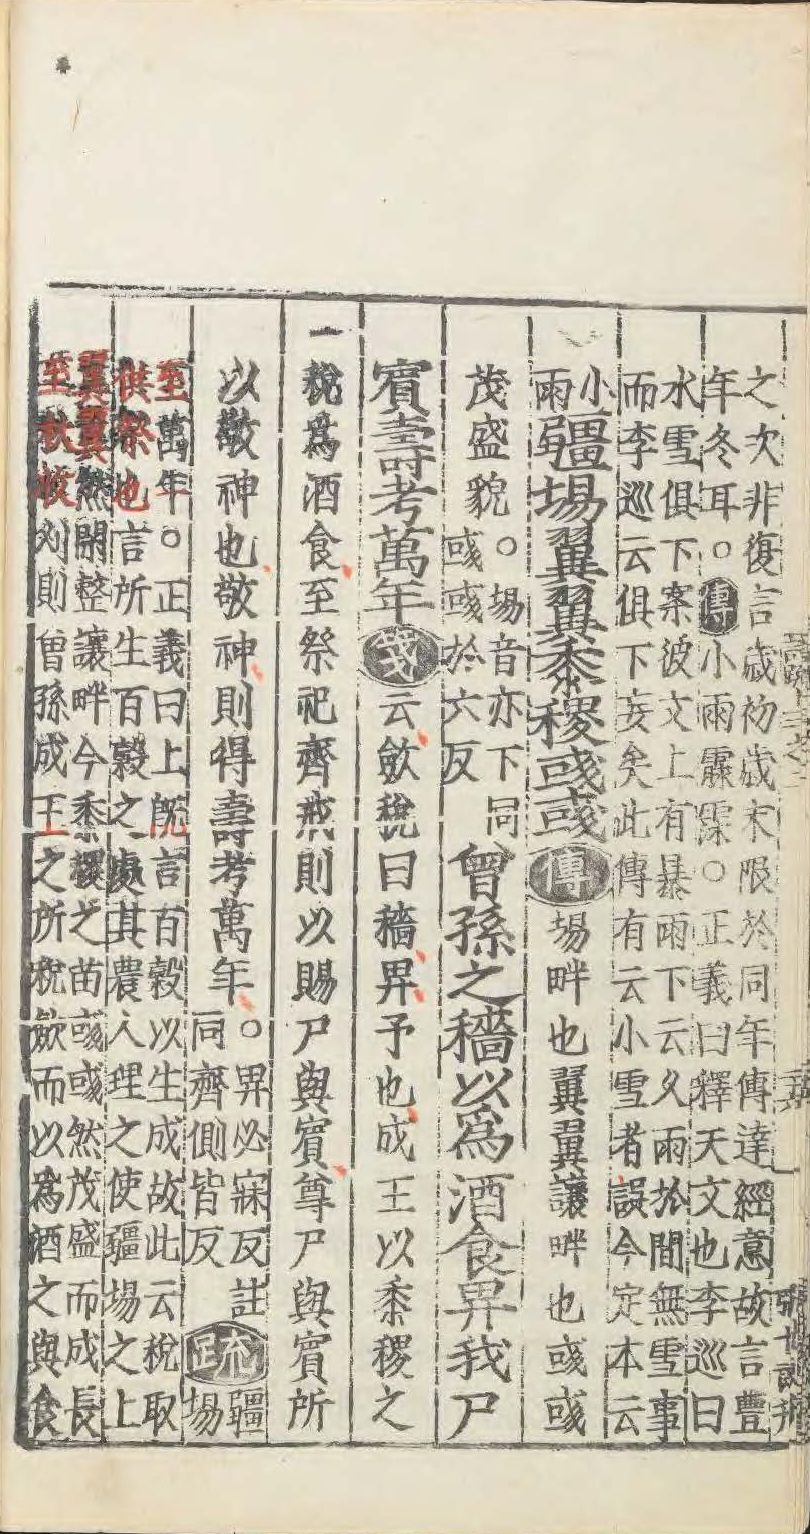 之次非復言歲初歲末限於同年傳達經意故言豐
年冬耳。傳小雨霢霂。正義曰釋天文也李巡曰
水雪俱下案彼文上有暴雨下云久雨於間無雪事
而李巡云俱下妄矣此傳有云小雪者誤今定本云
小
雨
疆場翼翼黍稷彧彧傳場畔也翼翼讓畔也彧彧
茂盛貌
。場音亦下同
彧彧於六反
曾孫之穡以爲酒食畀我尸
賓壽考萬年箋云斂稅曰穡畀予也成王以黍稷之
一稅爲酒食至祭祀齊戒則以賜尸與賓尊尸與賓所
以敬神也敬神則得壽考萬年
。畀必寐反註
同齊側皆反
疏
疆
場
至萬年。正義曰上既言百穀以生成故此云稅取
供祭也言所生百穀之處其農人理之使疆場之上
翼翼然閒整讓畔今黍稷之苗彧彧然茂盛而成長
至秋收刈則曾孫成王之所稅斂而以爲酒之與食